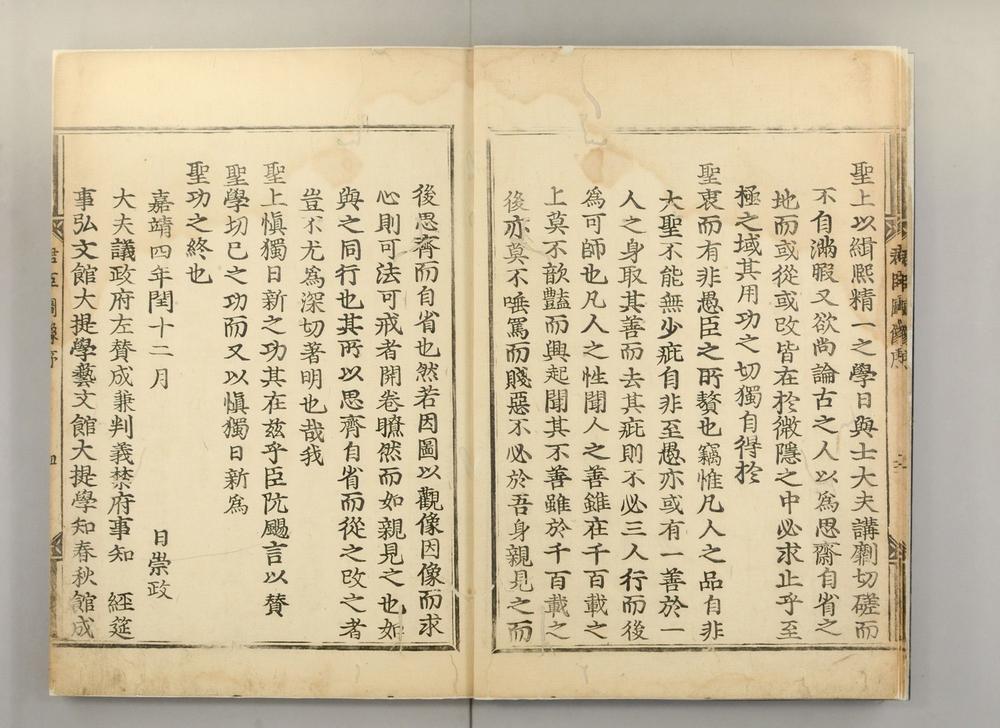 聖上以緝熙精一之學日與士大夫講劘切磋而
不自滿暇又欲尚論古之人以爲思齋自省之
地而或從或改皆在於微隱之中必求止乎至
極之域其用功之切獨自得於
聖衷而有非愚臣之所贅也竊惟凡人之品自非
大聖不能無少疵自非至愚亦或有一善於一
人之身取其善而去其疵則不必三人行而後
爲可師也凡人之性聞人之善雖在千百載之
上莫不歆豔而興起聞其不善雖於千百載之
後亦莫不唾罵而賤惡不必於吾身親見之而
後思齊而自省也然若因圖以觀像因像而求
心則可法可戒者開卷瞭然而如親見之也如
與之同行也其所以思齊自省而從之改之者
豈不尤爲深切著明也哉我
聖上愼獨日新之功其在玆乎臣阬颺言以賛
聖學切己之功而又以愼獨日新爲
聖功之終也
嘉靖四年閏十二月 日崇政
大夫議政府左賛成兼判義禁府事知 經筵
事弘文館大提學藝文館大提學知春秋館成
君臣圖像序 四